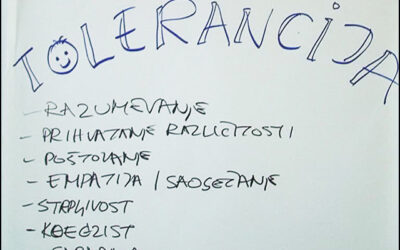 TOLERANCIJA
- RAZUMEVANJE
- PRIHVATANJE RAZLIČITOSTI
- POŠTOVANJE
- EMPATIJA / SAOSEĆANJE
- STRPLJIVOST
- KOEGZIST